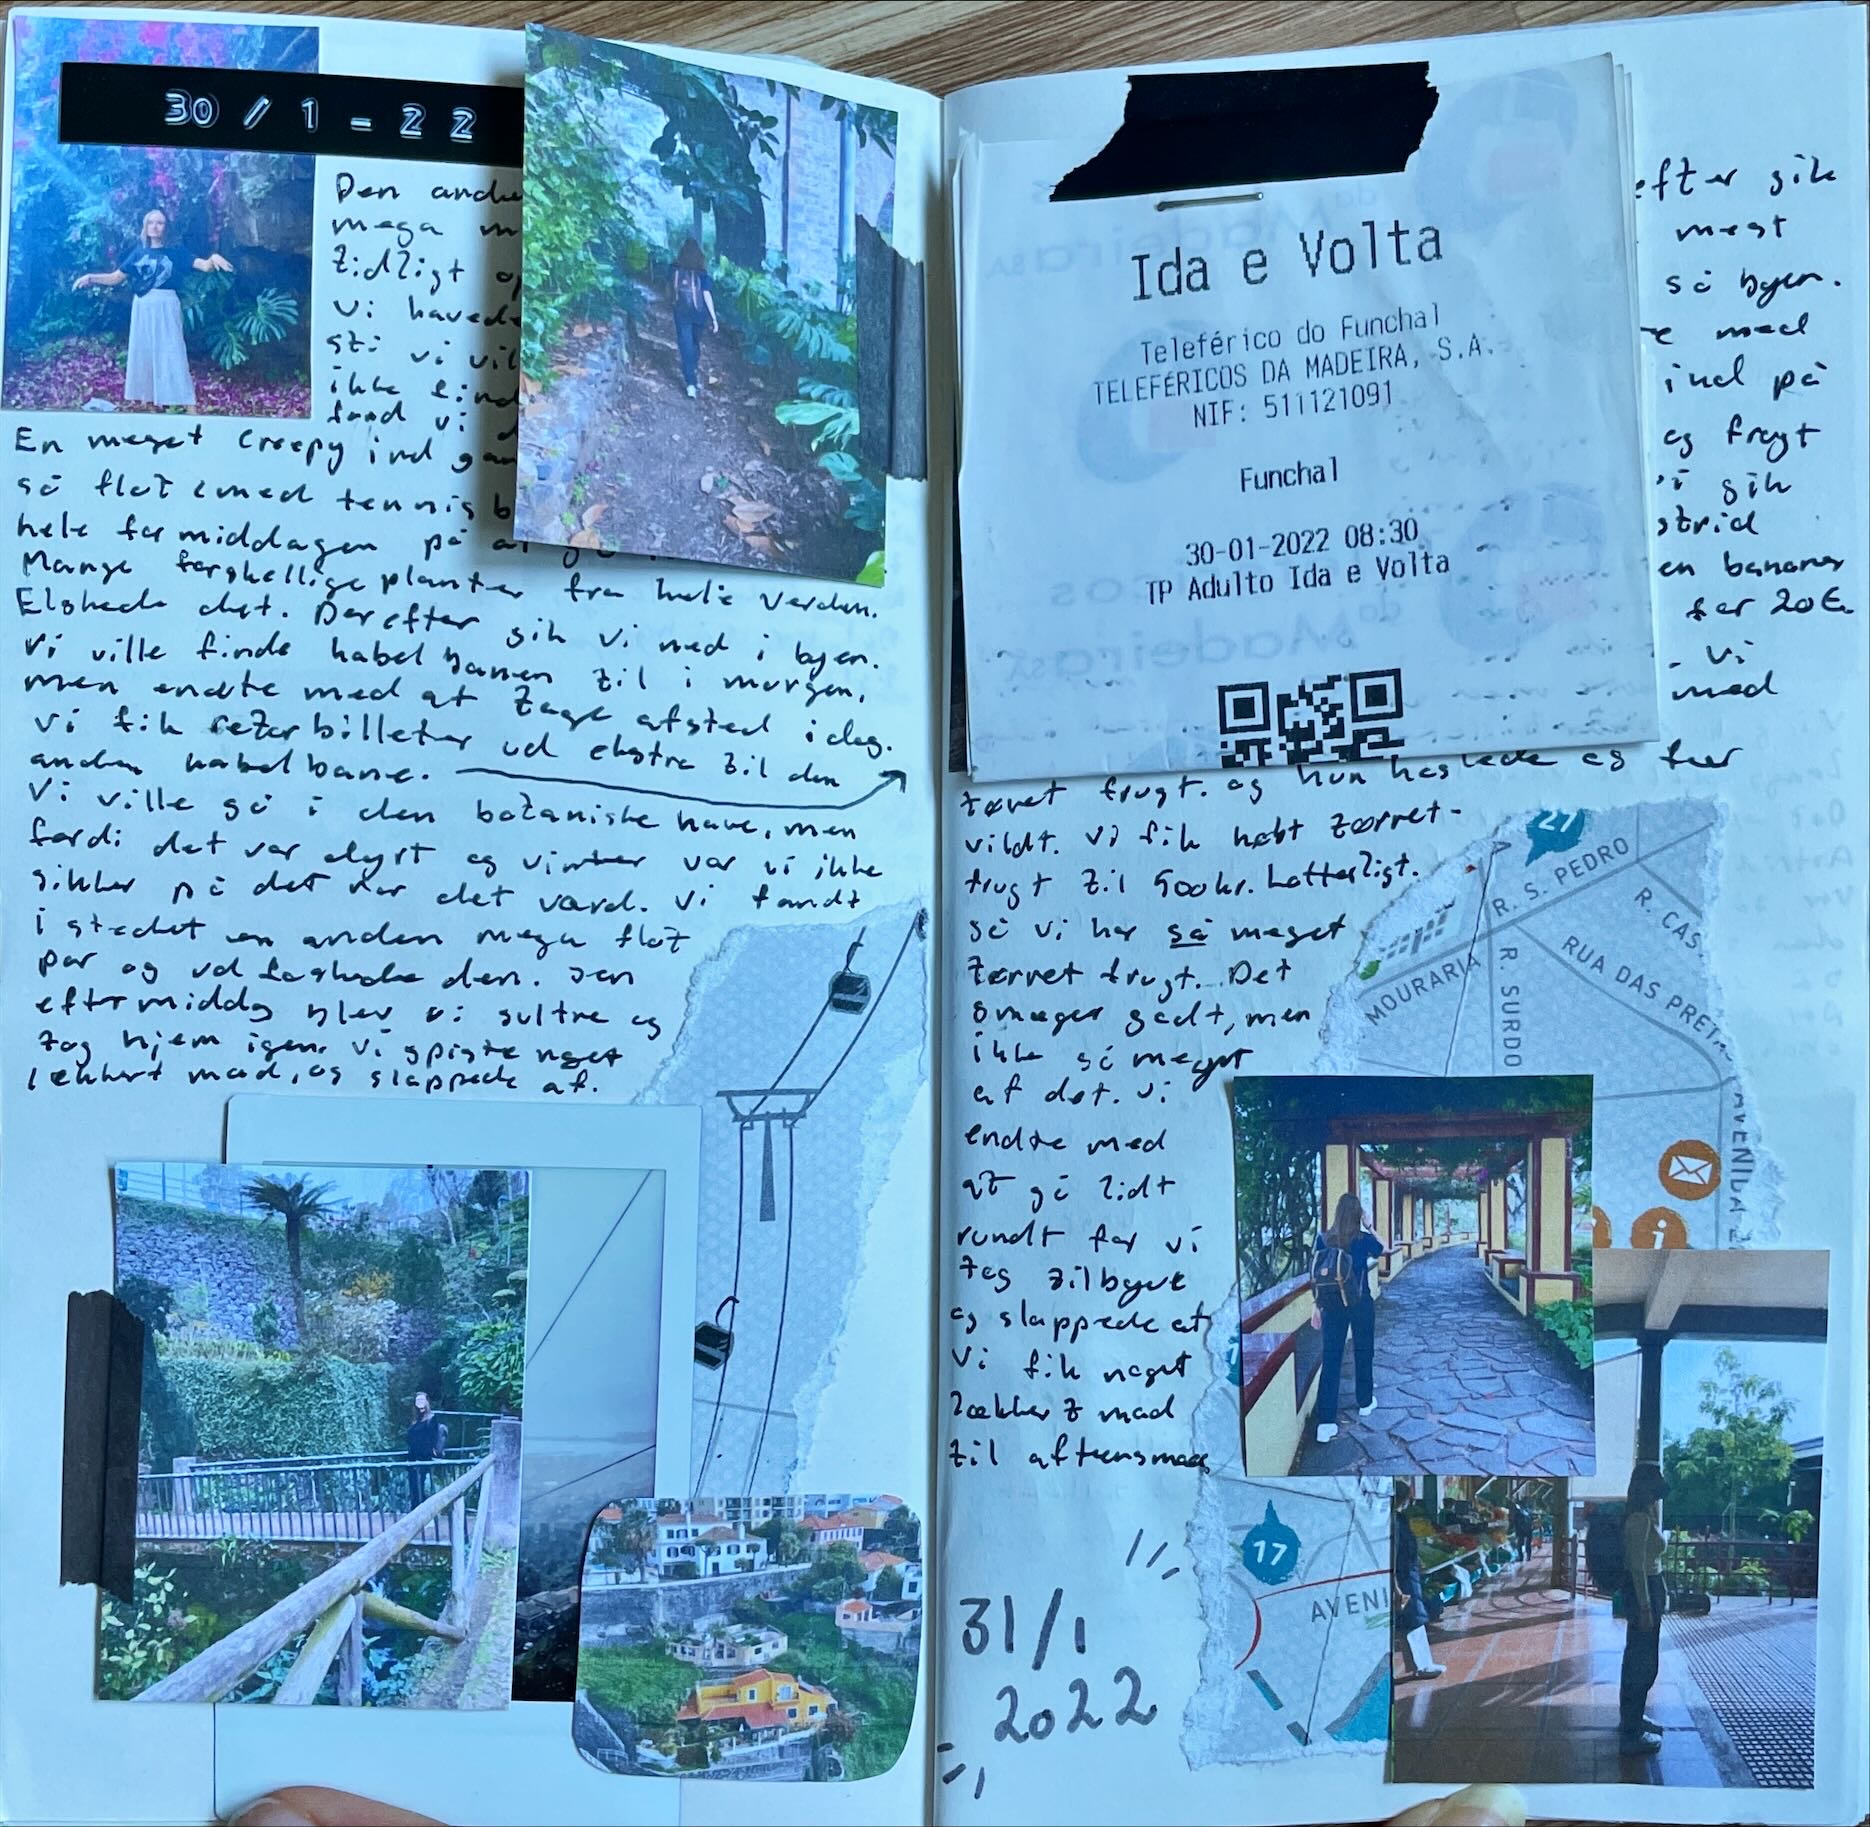 30 / 1 - 22
Den anden
mega m
tidligt op
vi havde
sti vi vil
ikke find
fand vi d
En meget creepy ind gan
så flot med tennis b
hele formiddagen på at
Mange forskellige planter fra hele verden.
Elskede det. Derefter gik vi ned i byen.
Vi ville finde kabelbanen til i morgen,
men endte med at tage afsted i dag.
Vi fik retur billetter ud ekstra til den
anden kabelbane.
Vi ville gå i den botaniske have, men
fordi det var dyrt og vinter var vi ikke
sikker på det var det værd. Vi fandt
i stedet en anden mega flot
par og udforskede den. Sen
eftermiddg blev vi sultre og
tog hjem igen. Vi spiste noget
lækkert mad, og slappede af.
Ida e Volta
Teleférico do Funchal
TELEFÉRICOS DA MADEIRA, S.A.
NIF: 511121091
Funchal
30-01-2022 08:30
TP Adulto Ida e Volta
efter gik
mest
så byen.
med
ind på
og frugt
vi gik
strid
en banan
for 20€
. Vi
med
tørret frugt. og hun hostede og
vildt. Vi fik købt tørret-
frugt til 500kr. Latterligt.
så vi har så meget
tørret frugt. Det
smager godt, men
ikke så meget
af det. Vi
endte med
at gå lidt
rundt før vi
tog tilbget
og slappede af
Vi fik noget
lækkert mad
til aftensmad
27
R. S. PEDRO
R. CAS
MOURARIA
R. SURDO
RUA DAS PRETA
AVENIDA
i
17
AVENI
31/1
2022